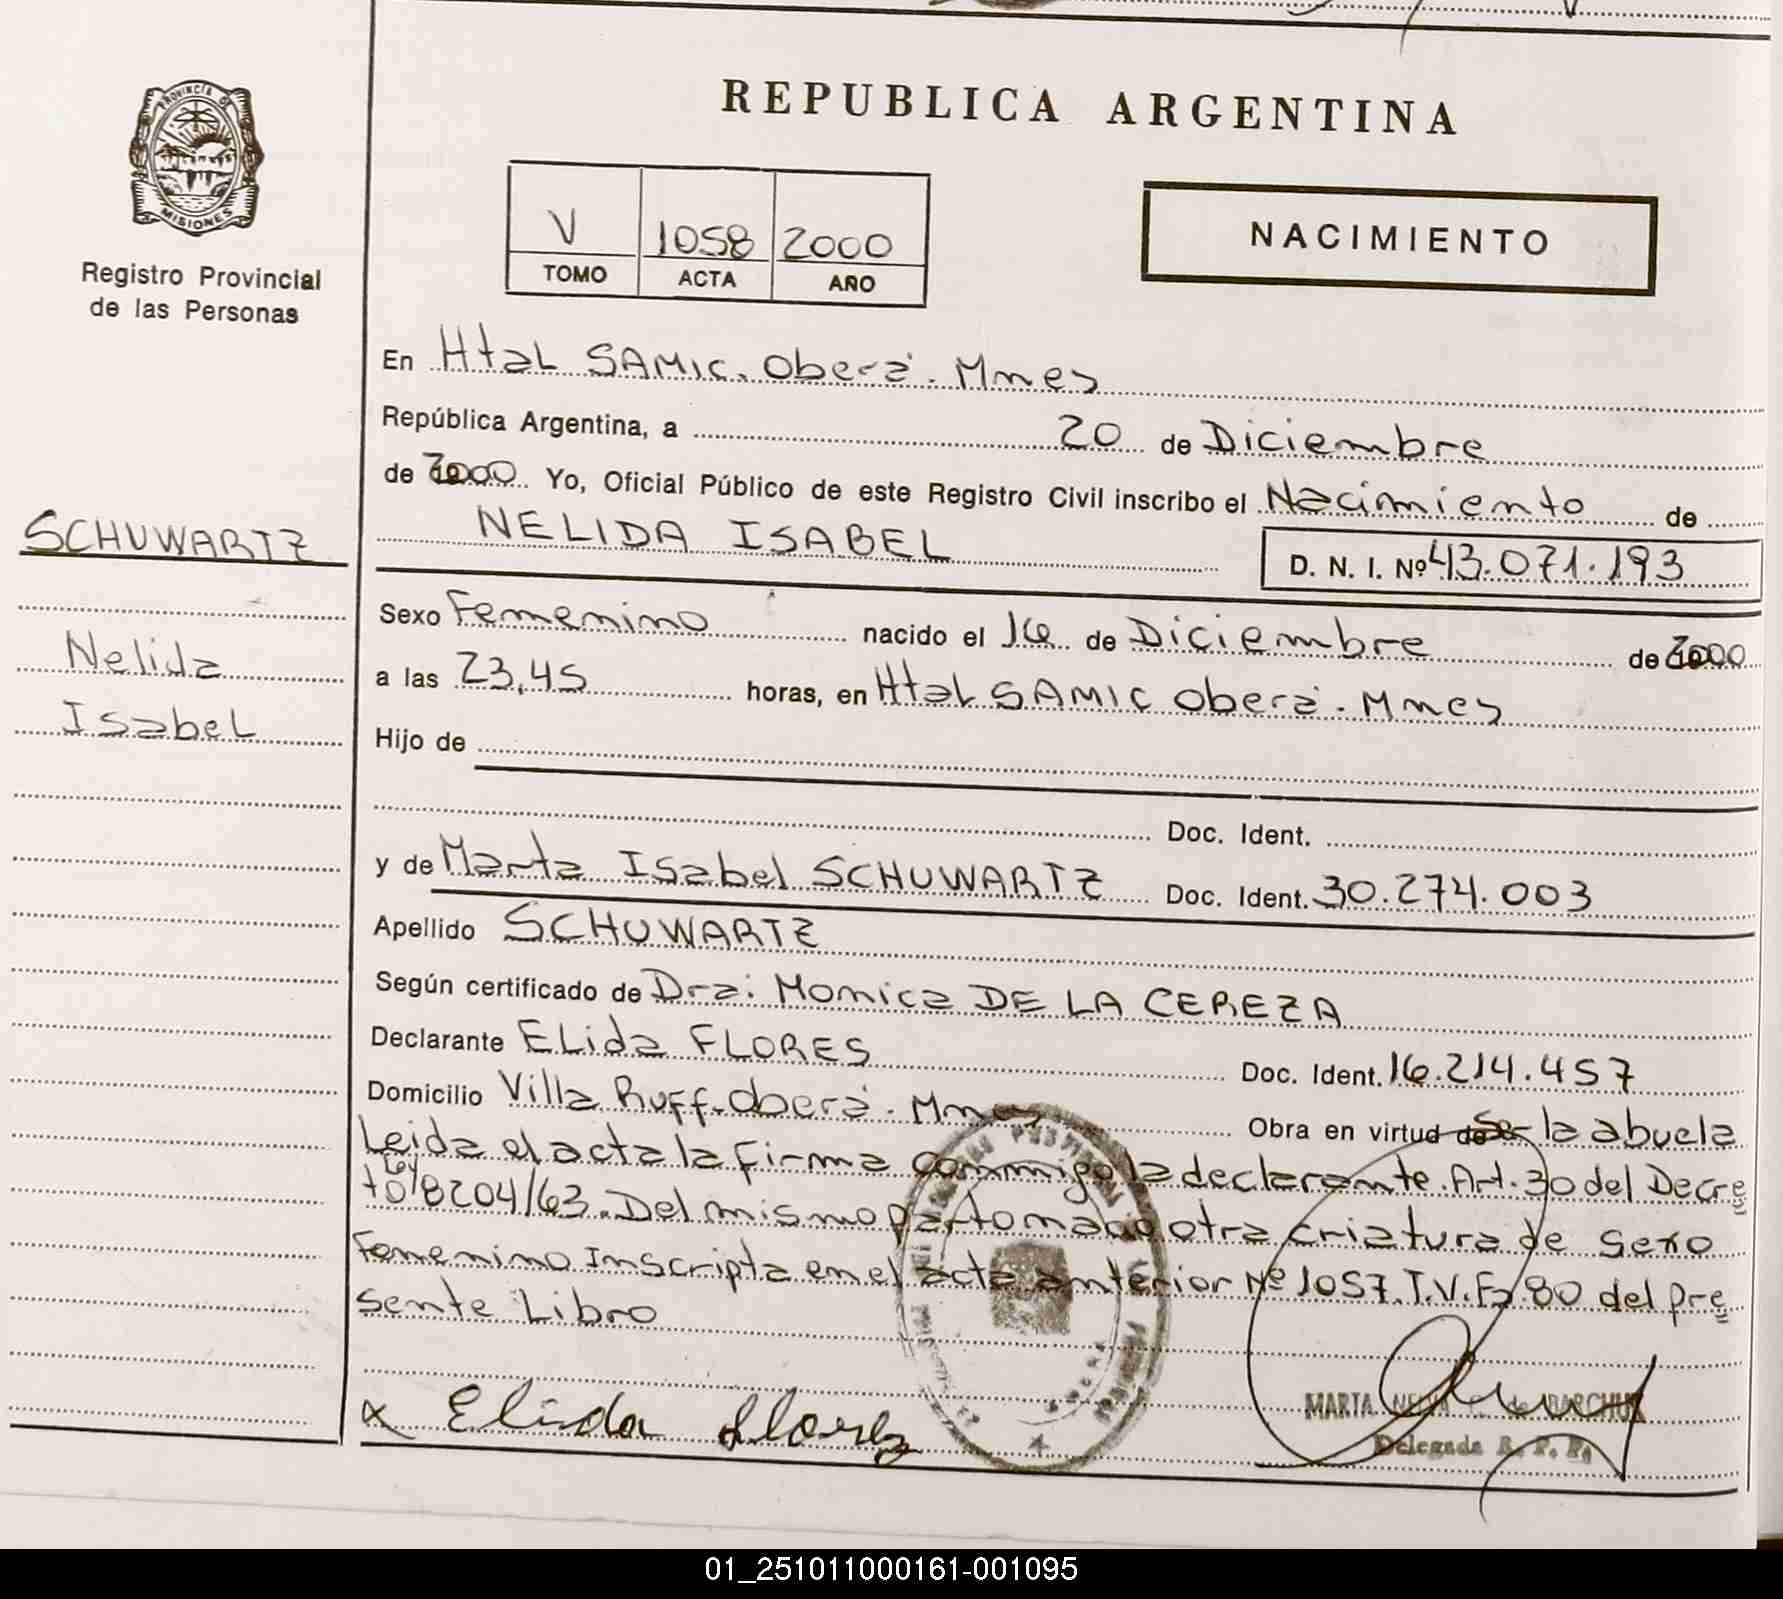 REPUBLICA ARGENTINA
PROVINCIA DE
MISIONES
Registro Provincial
de las Personas
V 1058 2000
TOMO ACTA AÑO
NACIMIENTO
En Htal SAMIC. Oberá. Mnes
República Argentina, a 20 de Diciembre
de 2000 Yo, Oficial Público de este Registro Civil inscribo el Nacimiento de
SCHUWARTZ
NELIDA ISABEL
D. N. I. Nº 43.071.193
Sexo Femenino nacido el 16 de Diciembre de 2000
Nelida
a las 23,45 horas, en Htal SAMIC Oberá. Mnes
Isabel
Hijo de
Doc. Ident.
y de Marta Isabel SCHUWARTZ Doc. Ident. 30.274.003
Apellido SCHUWARTZ
Según certificado de Dra: Monica DE LA CEREZA
Declarante ELida FLORES Doc. Ident. 16.214.457
Domicilio Villa Ruff. Oberá. Mnes Obra en virtud de ser la abuela
Leida el acta la firma conmigo la declarante. Art. 30 del Decre
to Ley 8204/63. Del mismo parto nacio otra criatura de sexo
Femenino Inscripta en el acta anterior Nº 1057. T.V. Fº 80 del pre
sente Libro
x Elida flores
MARTA
Delegada R. P. P.
01_251011000161-001095